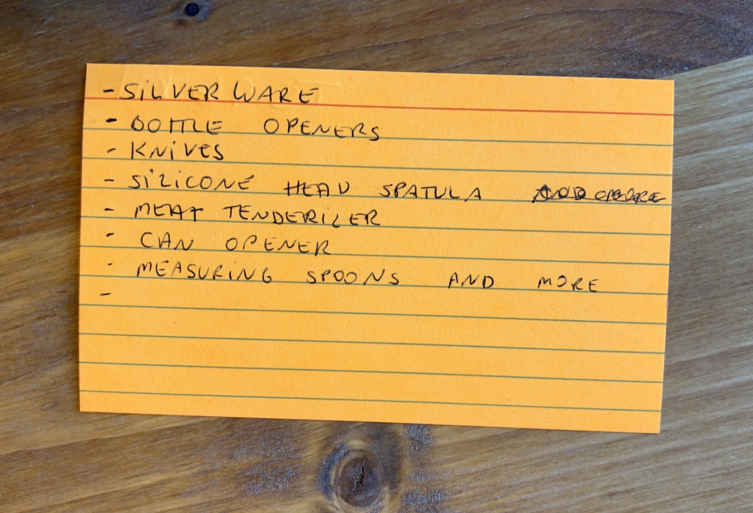 - SILVER WARE
- BOTTLE OPENERS
- KNIVES
- SILICONE HEAD SPATULA
- MEAT TENDERIZER
- CAN OPENER
- MEASURING SPOONS AND MORE
-